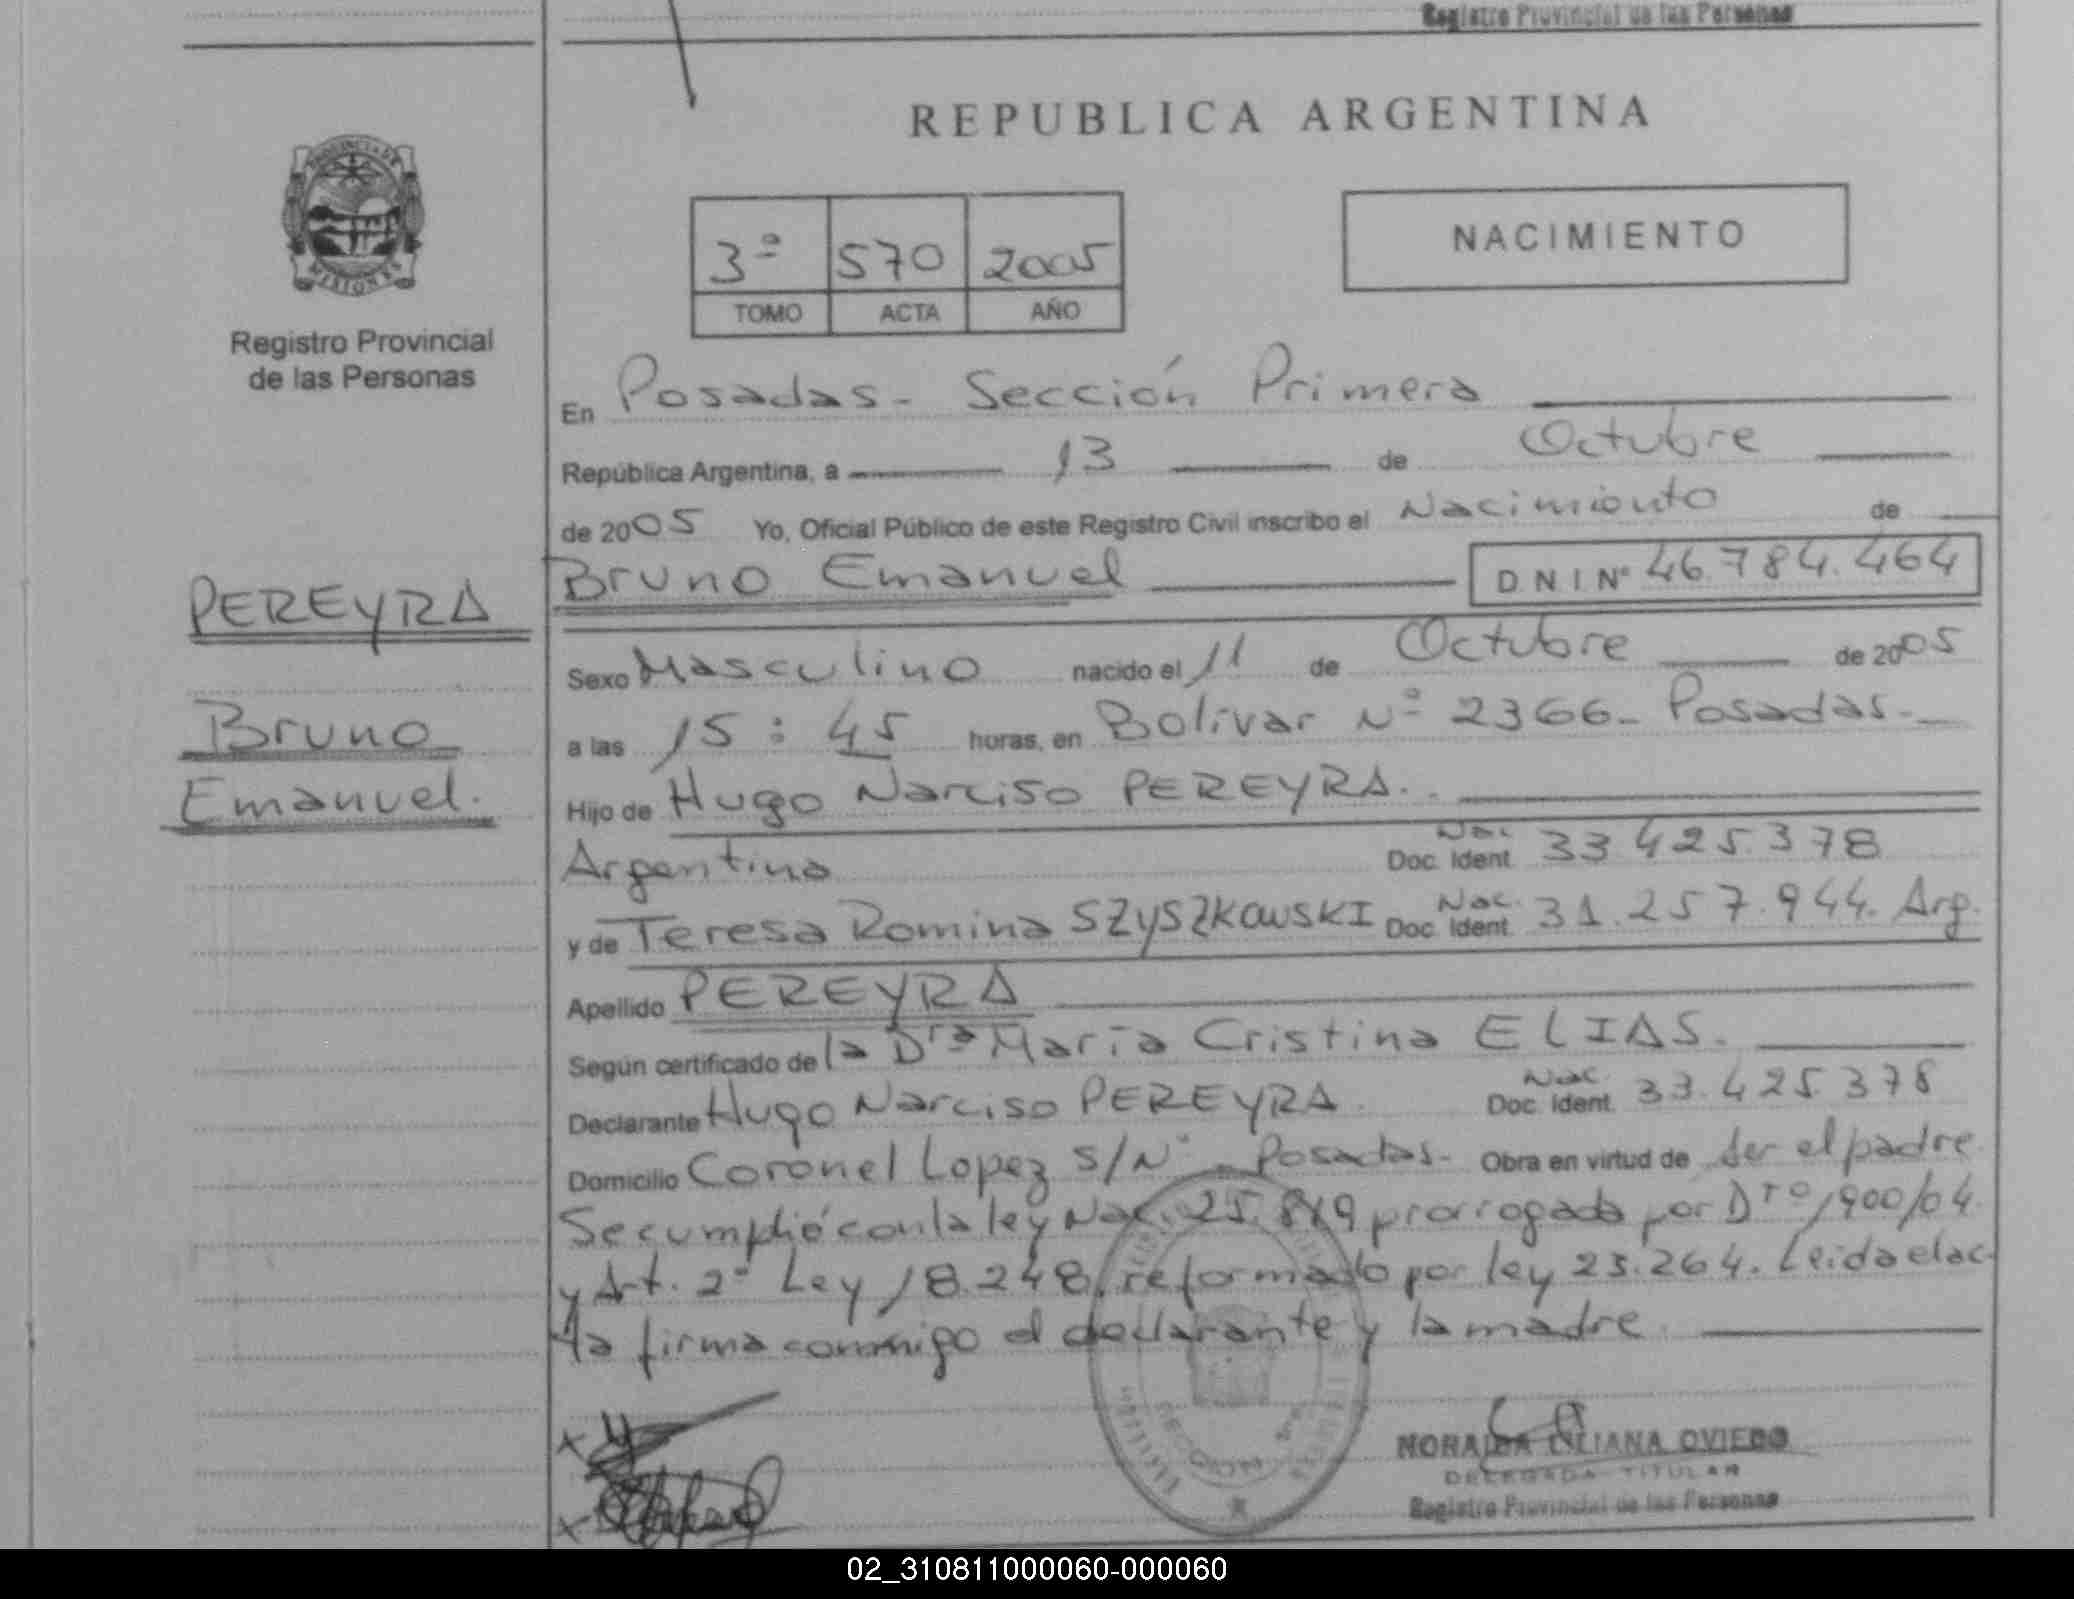 Registro Provincial de las Personas
REPUBLICA ARGENTINA
PROVINCIA DE
MISIONES
Registro Provincial
de las Personas
3ª 570 2005
TOMO ACTA AÑO
NACIMIENTO
En Posadas - Sección Primera
República Argentina, a 13 de Octubre
de 2005 Yo, Oficial Público de este Registro Civil inscribo el Nacimiento de
Bruno Emanuel D N I Nº 46.784.464
PEREYRA
Bruno
Emanuel.
Sexo Masculino nacido el 11 de Octubre de 2005
a las 15:45 horas, en Bolivar Nº 2366 - Posadas.-
Hijo de Hugo Narciso PEREYRA..
Argentino Nac. Doc. Ident. 33.425.378
y de Teresa Romina SZYSZKOWSKI Nac. Doc. Ident. 31.257.944. Arg.
Apellido PEREYRA
Según certificado de la Dra María Cristina ELIAS.
Declarante Hugo Narciso PEREYRA. Nac. Doc. Ident. 33.425.378
Domicilio Coronel Lopez S/Nº - Posadas - Obra en virtud de ser el padre.
Se cumplió con la ley Nac. 25.819 prorrogada por Dto 1900/04.
y Art. 2º Ley 18.248, reformado por ley 23.264. Leida el ac-
ta firma conmigo el declarante y la madre.
NORALBA LILIANA OVIEDO
DELEGADA TITULAR
Registro Provincial de las Personas
02_310811000060-000060